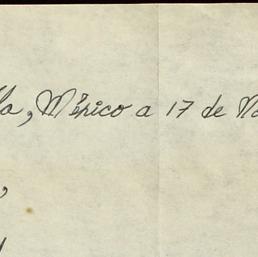 la, México a 17 de No
,